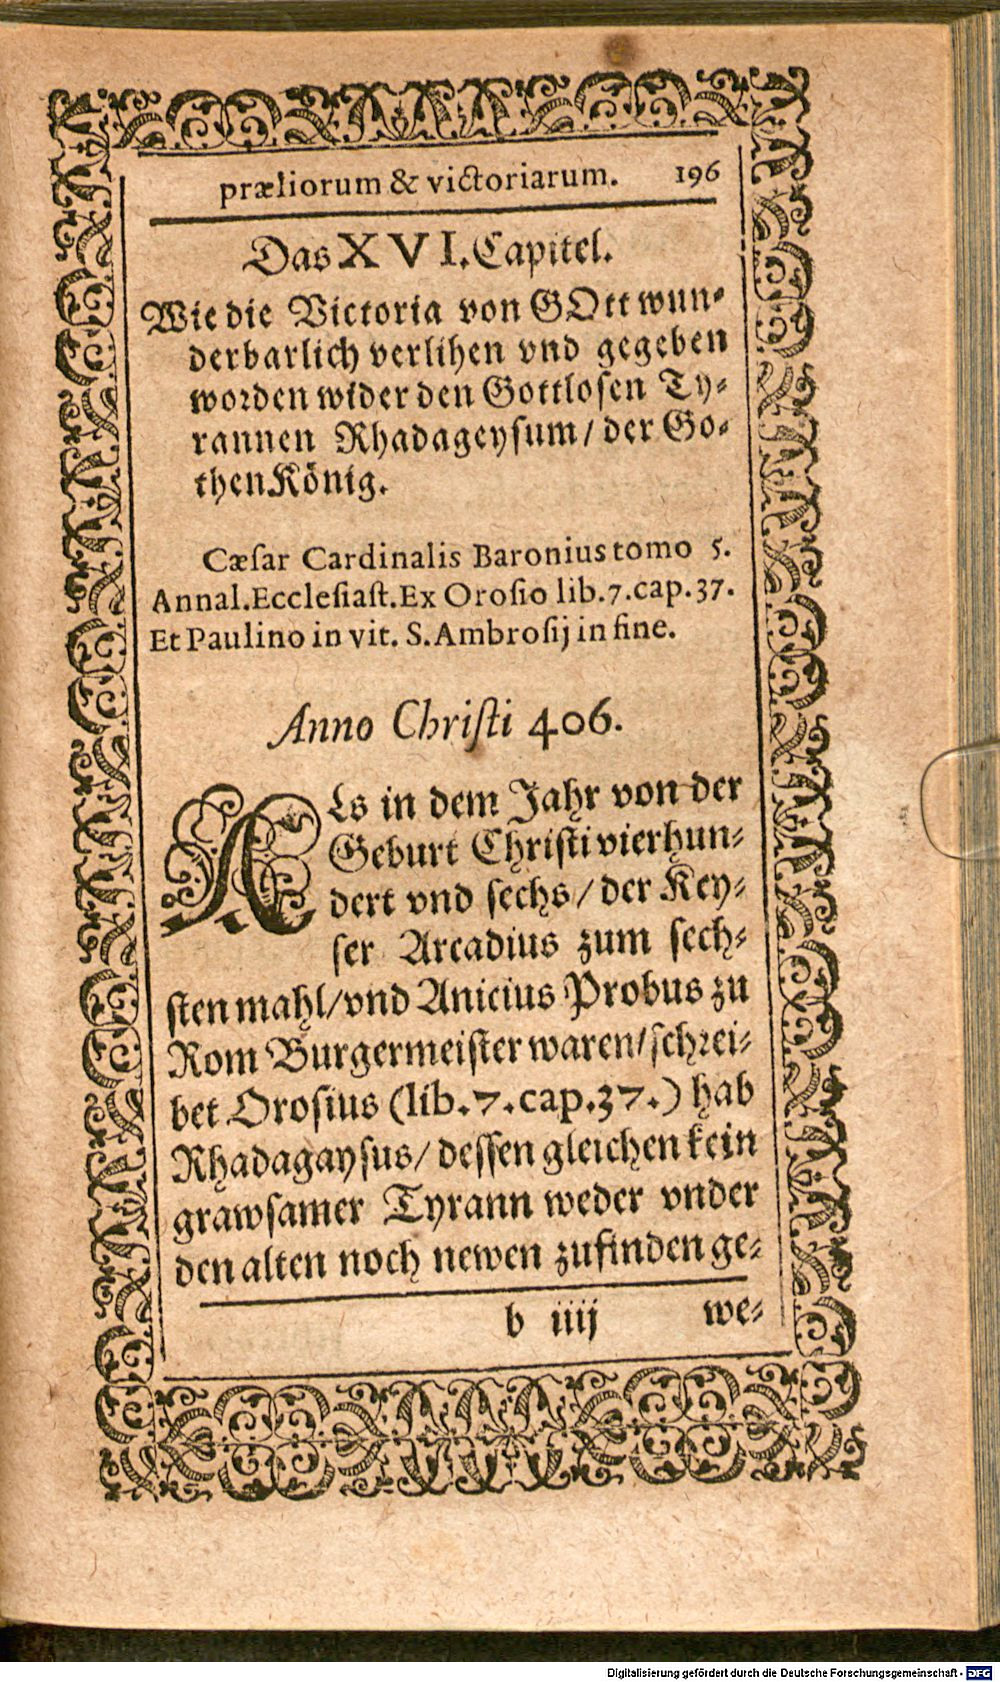 præliorum & victoriarum. 196
Das XVI. Capitel.
Wie die Victoria von GOtt wun⸗
derbarlich verlihen vnd gegeben
worden wider den Gottlosen Ty⸗
rannen Rhadageysum/ der Go⸗
then König.
Cæſar Cardinalis Baronius tomo 5.
Annal. Eccleſiaſt. Ex Oroſio lib. 7. cap. 37.
Et Paulino in vit. S. Ambroſij in fine.
Anno Chriſti 406.
ALs in dem Jahr von der
Geburt Chriſti vierhun⸗
dert vnd ſechs/ der Key⸗
ſer Arcadius zum ſech⸗
ſten mahl/ vnd Anicius Probus zu
Rom Burgermeiſter waren/ ſchrei⸗
bet Oroſius (lib. 7. cap. 37.) hab
Rhadagayſus/ deſſen gleichen kein
grawſamer Tyrann weder vnder
den alten noch newen zufinden ge⸗
b iiij we⸗
Digitalisierung gefördert durch die Deutsche Forschungsgemeinschaft - DFG